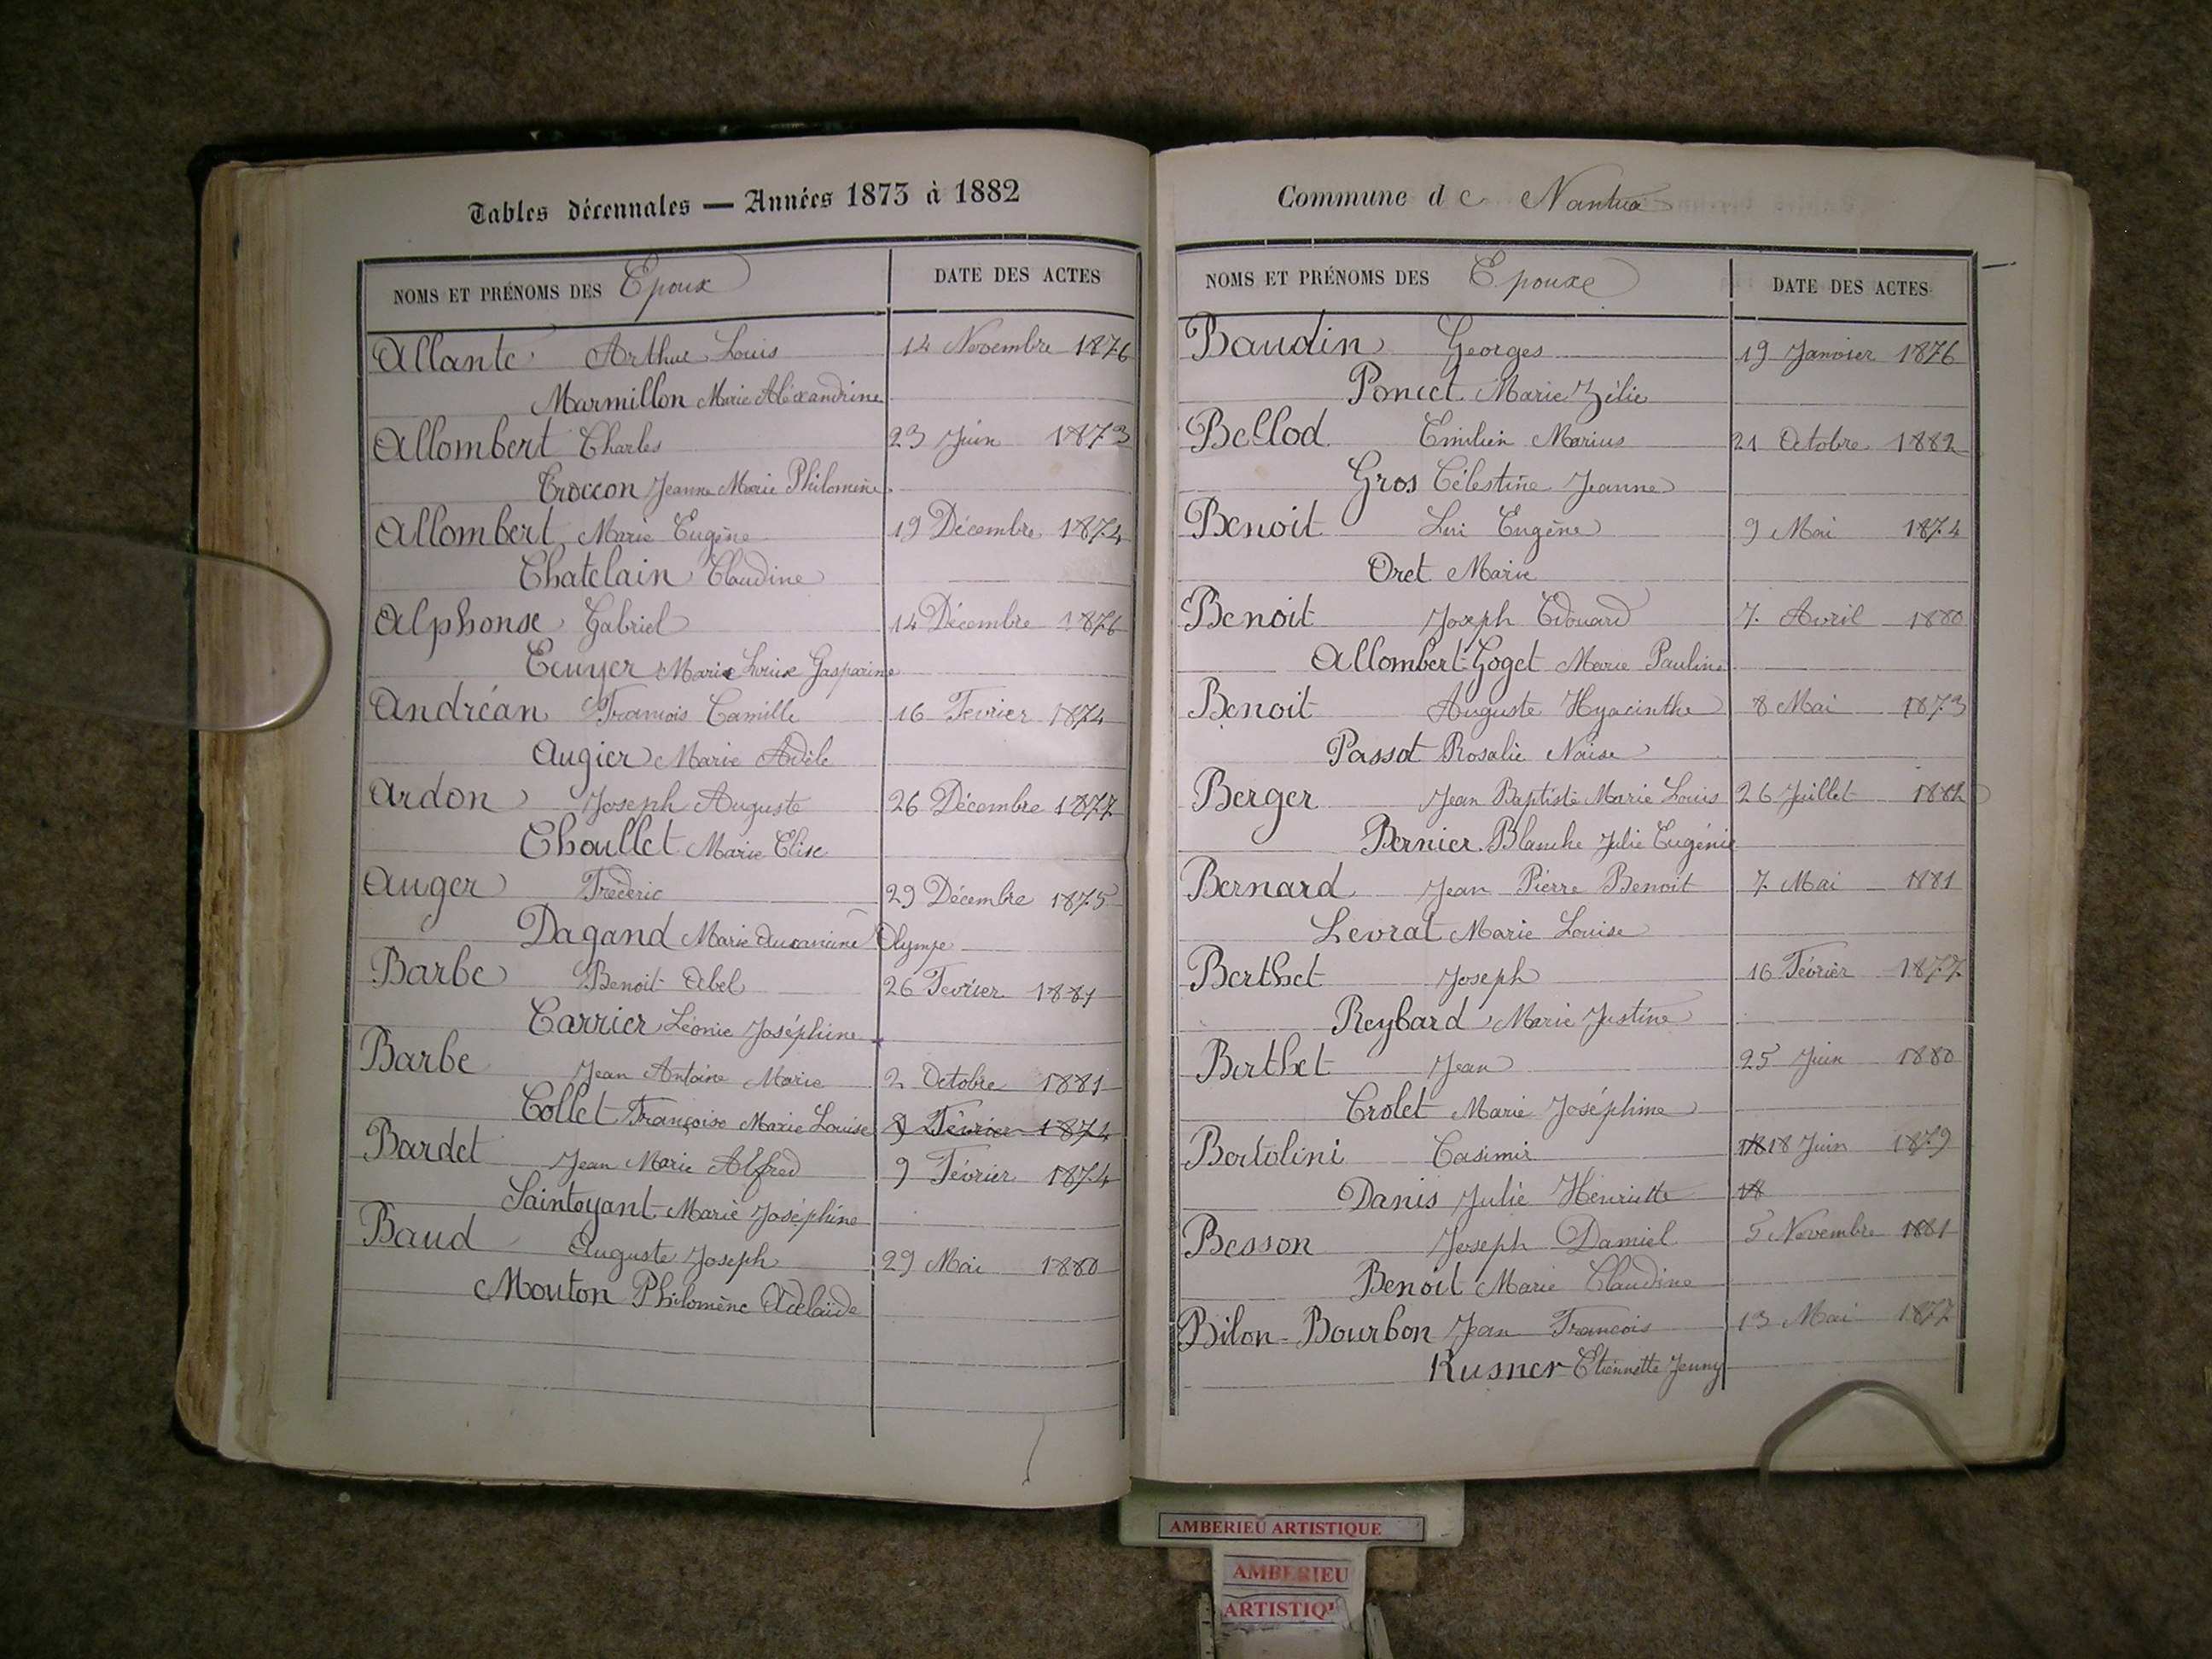 Tables décennales — Années 1873 à 1882
NOMS ET PRÉNOMS DES Epoux
DATE DES ACTES
Allante Arthur Louis 14 Novembre 1876
Marmillon Marie Alexandrine
Allombert Charles 23 Juin 1873
Troccon Jeanne Marie Philomène
Allombert Marie Eugène 19 Décembre 1874
Chatelain Claudine
Alphonse Gabriel 14 Décembre 1876
Ecuyer Marie Louise Gasparine
Andréan François Camille 16 Fevrier 1874
Augier Marie Adèle
Ardon Joseph Auguste 26 Décembre 1877
Choullet Marie Elise
Auger Frederic 29 Décembre 1875
Dagand Marie Olympe
Barbe Benoit Abel 26 Fevrier 1881
Carrier Léonie Joséphine
Barbe Jean Antoine Marie 2 Octobre 1881
Collet Françoise Marie Louise 9 Février 1874
Bardet Jean Marie Alfred 9 Février 1874
Saintoyant Marie Joséphine
Baud Auguste Joseph 29 Mai 1880
Mouton Philomène Adelaïde
Commune de Nantua
NOMS ET PRÉNOMS DES Epouxe
DATE DES ACTES
Baudin Georges 19 Janvier 1876
Poncet Marie Zélie
Bellod Emilien Marius 21 Octobre 1882
Gros Célestine Jeanne
Benoit Eugène 9 Mai 1874
Oret Marie
Benoit Joseph Edouard 7 Avril 1880
Allombert-Goget Marie Pauline
Benoit Auguste Hyacinthe 8 Mai 1873
Passot Rosalie Naise
Berger Jean Baptiste Marie Louis 26 Juillet 1882
Bernier Blanche Julie Eugénie
Bernard Jean Pierre Benoit 7 Mai 1881
Levrat Marie Louise
Berthet Joseph 16 Février 1877
Reybard Marie Justine
Berthet Jean 25 Juin 1880
Crolet Marie Joséphine
Bortolini Casimir 18 18 Juin 1879
Danis Julie Henriette 18
Besson Joseph Damiel 5 Novembre 1881
Benoit Marie Claudine
Bilon-Bourbon Jean Francois 13 Mai 1877
Kusner Etiennette Jenny
AMBERIEU ARTISTIQUE
AMBERIEU
ARTISTIQU